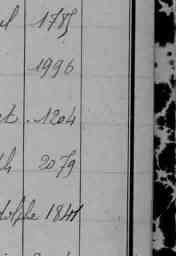 l 1785
1996
et. 1204
th 2079
dolphe 1841